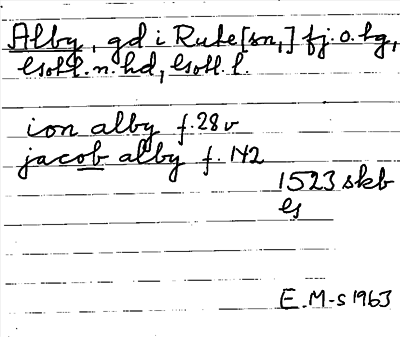 Alby, gd i Rute[sn,] fj.o.hg,
Esołł.n.hd, Esołł.l.
ion alby f.28v
jacob alby f. 142
1523 skb
Es
E.M-s 1963